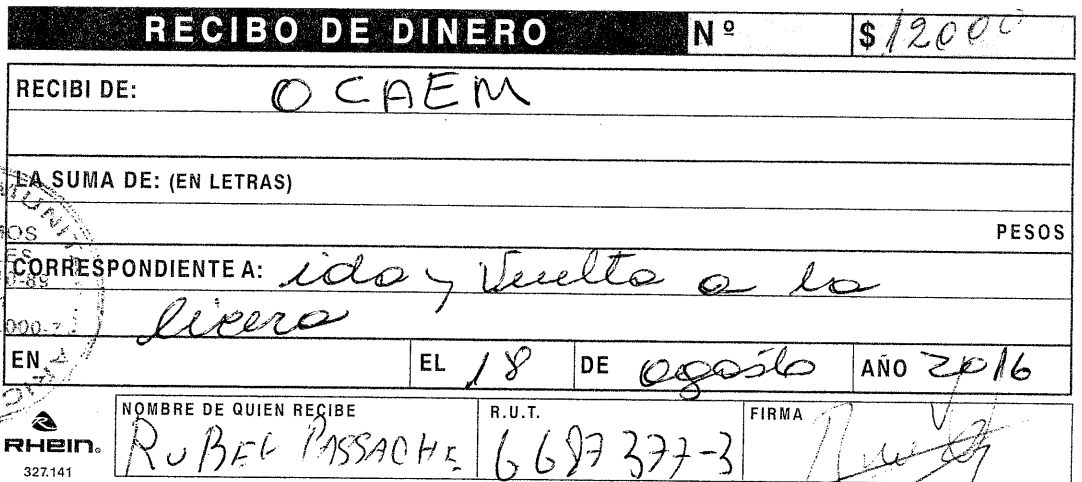 RECIBO DE DINERO Nº $12000
RECIBI DE: OCAEM
LA SUMA DE: (EN LETRAS)
PESOS
CORRESPONDIENTE A: ida y Vuelta a la
licera
EN EL 18 DE agosto AÑO 2016
NOMBRE DE QUIEN RECIBE R.U.T. FIRMA
RUBEL PASSACHE 6687377-3
RHEIN®
327.141